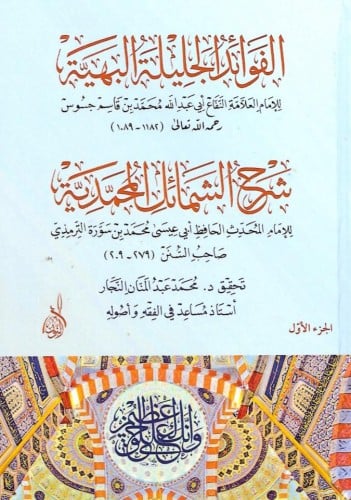 الفوائد الجليلة البهية
للإمام العلامة النفاع أبي عبد الله محمد بن قاسم جسوس
رحمه الله تعالى (١١٨٢-١٠٨٩)
شرح الشمائل المحمدية
للإمام المحدث الحافظ أبي عيسى محمد بن سورة الترمذي
صاحب السنن (٢٧٩-٢٠٩)
تحقيق د. محمد عبد المنان النجار
أستاذ مساعد في الفقه وأصوله
الجزء الأول
وإنك لعلى خلق عظيم